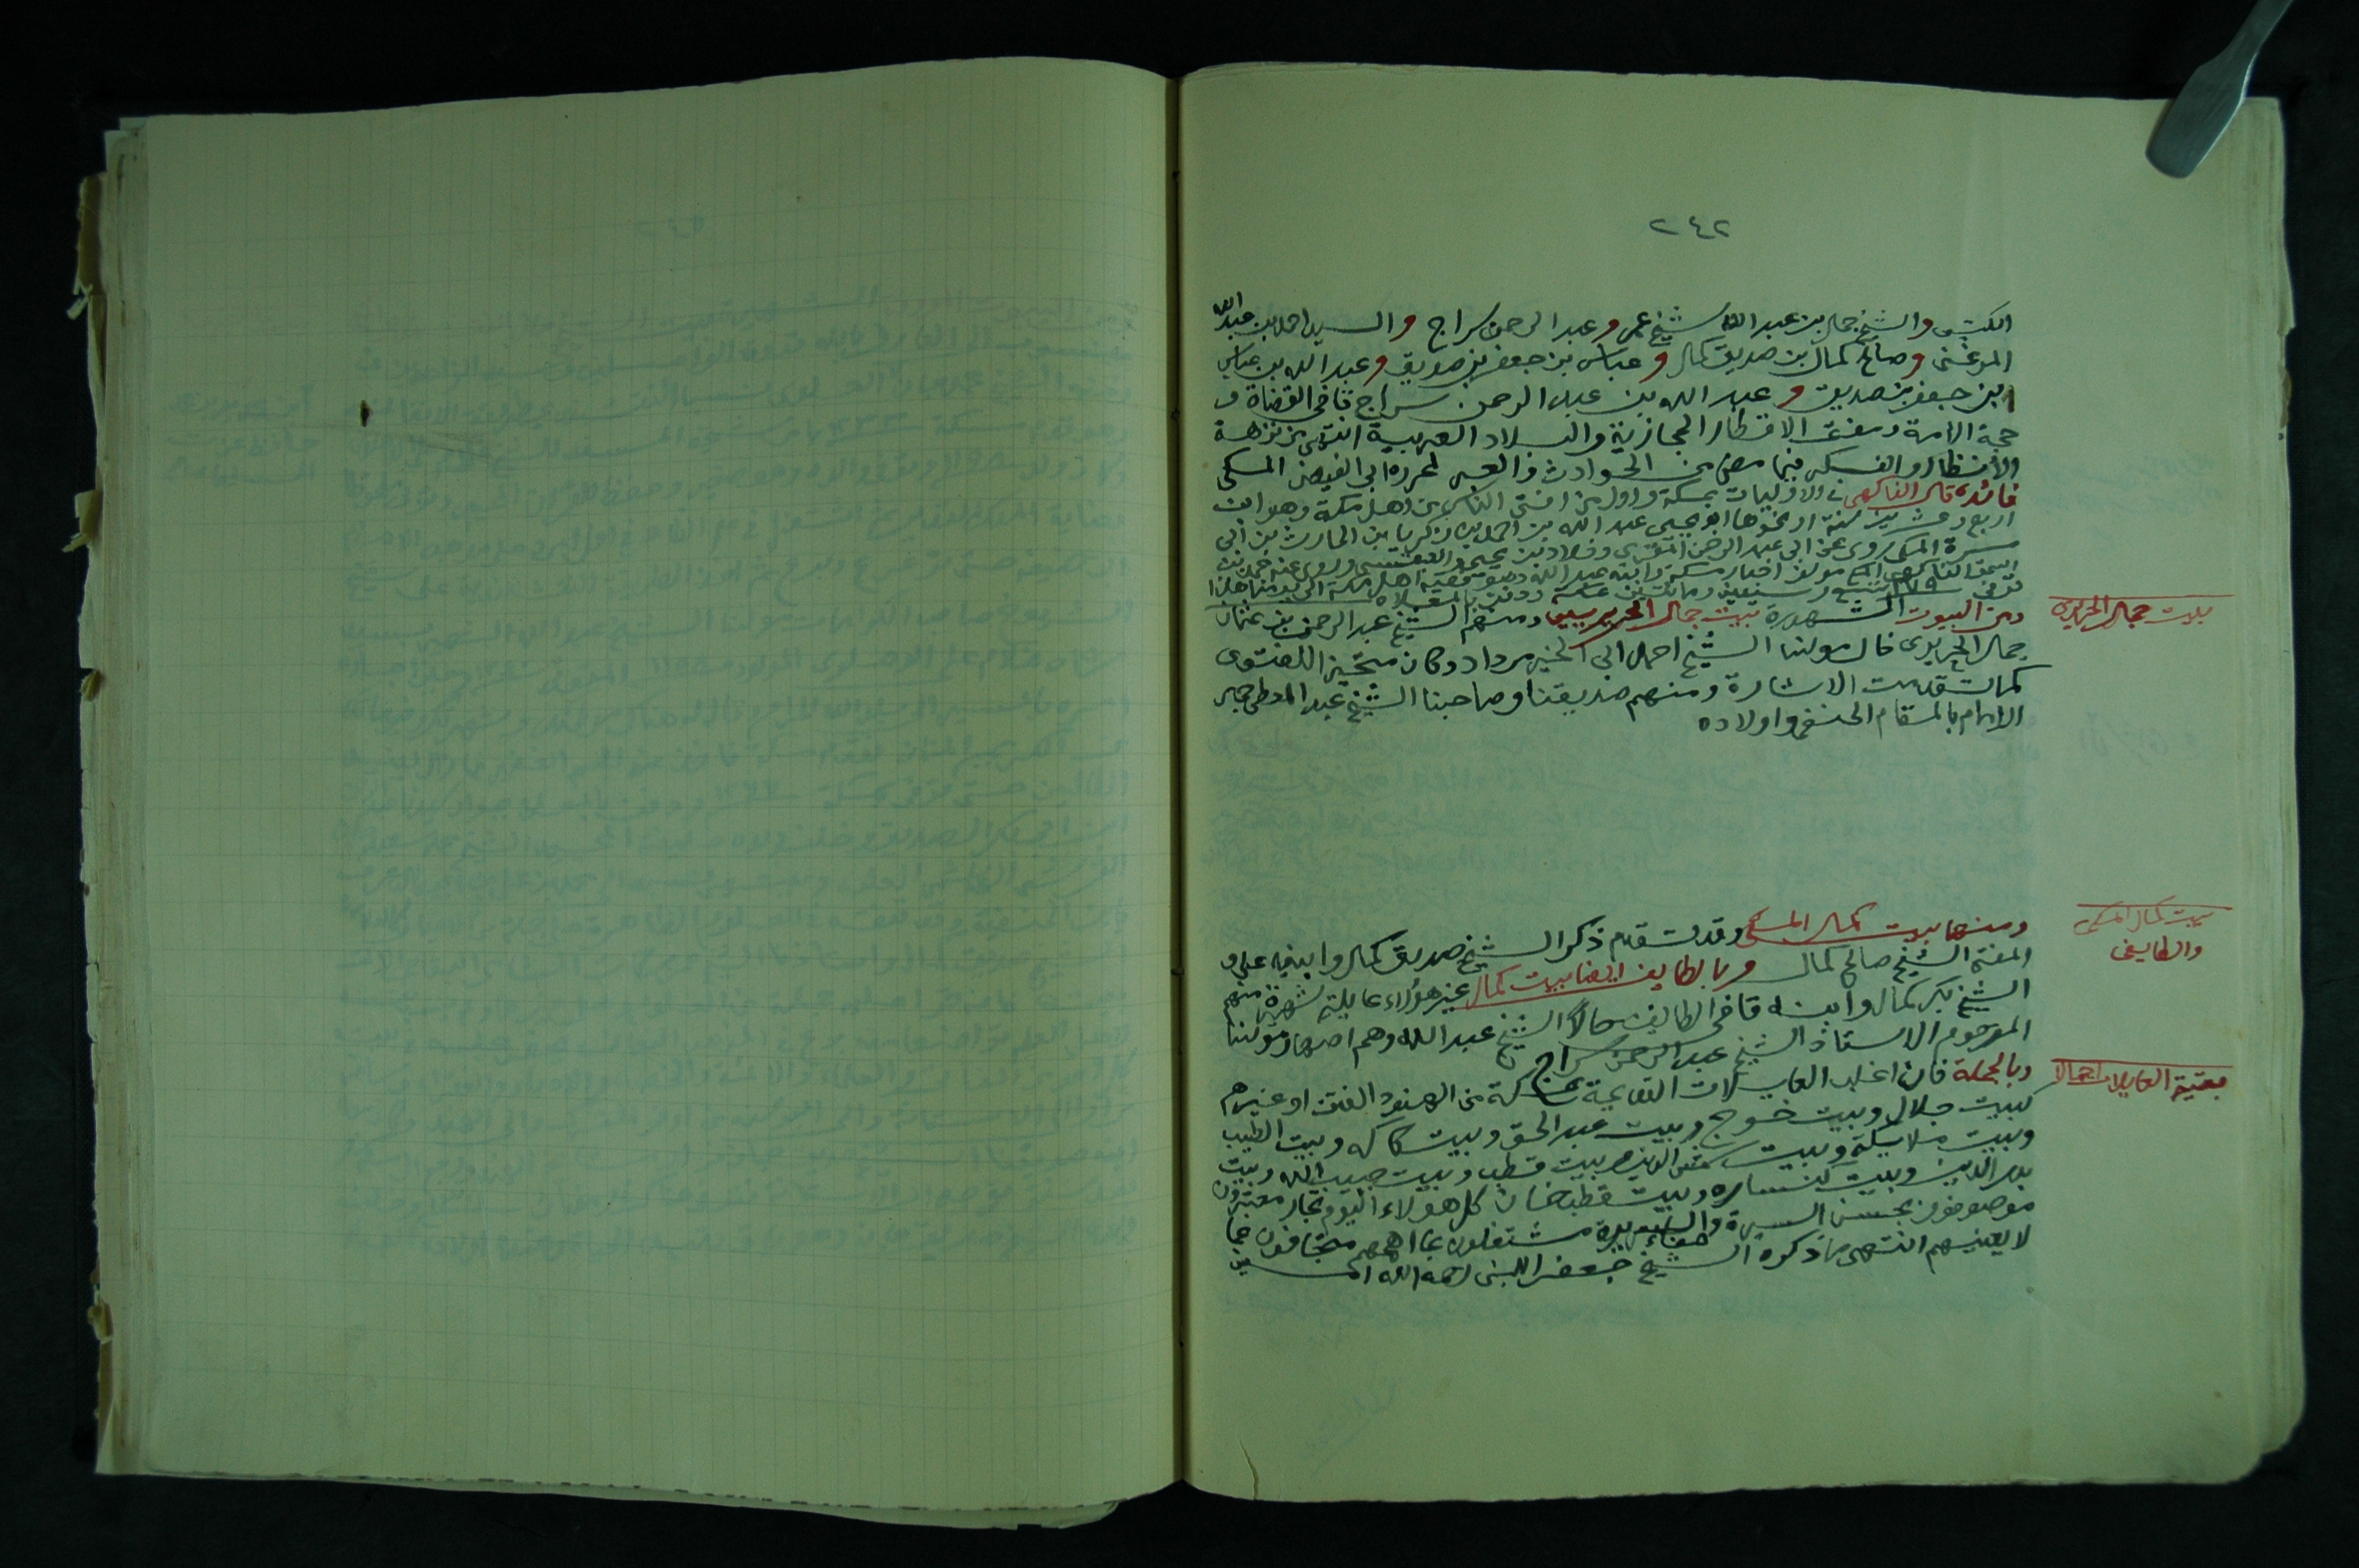 ٢٤٢
الكتبي والشيخ جمال بن عبد الله شيخ عمر و عبد الرحمن سراج والسيد احمد بن عبد الله
المرغني وصالح كمال بن صديق كمال و عباس بن جعفر بن صديق و عبد الله بن عباس
بن جعفر بن صديق و عبد الله بن عبد الرحمن سراج قاضي القضاة و
حجة الامة ومفتي الاقطار الحجازية والبلاد العربية انتهى من نزهة
الأنظار والفكر فيما مضى من الحوادث والعبر لمحرره ابي الفيض المكي
فائدة قال الفاكهي في الاوليات بمكة واول من افتى الناس من اهل مكة وهو ابن
اربع وعشرين سنة او نحوها ابو يحيى عبد الله بن احمد بن زكريا بن الحارث بن ابي
مسرة المكي روى عن ابي عبد الرحمن المقري و خلاد بن يحيى و روى عنه محمد بن
اسحق الفاكهي مولف اخبار مكة وابنه عبد الله وهو فقيه اهل مكة الى يومنا هذا
توفي ٢٧٩ تسع وسبعين ومائتين بمكة ودفن بالمعلاه
ومن البيوت الشهورة بيت جمال الحريريين ومنهم الشيخ عبد الرحمن بن عثمان
جمال الحريري خال مولانا الشيخ احمد ابي الخير مرداد وكان للفتوى
كما تقدمت الاشارة ومنهم صديقنا وصاحبنا الشيخ عبد المعطي جمال
الامام بالمقام الحنفي واولاده
بيت جمال الحريري
ومنها بيت كمال المكي وقد تقدم ذكر الشيخ صديق كمال وابنيه علي و
المفتي الشيخ صالح كمال وبالطايف ايضا بيت كمال غير هؤلاء عايلة شهيرة منهم
الشيخ بكر كمال وابنه قاضي الطايف حالاً الشيخ عبد الله وهم اصهار مولانا
المرحوم الاستاذ الشيخ عبد الرحمن سراج
بيت كمال المكي
والطايفي
وبالجملة فان اغلب العايلات القديمة بمكة من الهنود الفتن او غيرهم
كبيت جلال وبيت خوج وبيت عبد الحق وبيت كاكه وبيت الطيب
وبيت ملائكة وبيت شمس الدين وبيت قطب وبيت حبيب الله وبيت
بدر الدين وبيت كنساره وبيت قطبخان كل هولاء اليوم تجار معتبرون
موصوفون بحسن السيرة والسريرة مشتغلون بما اهمهم متجافون عما
لا يعنيهم انتهى ما ذكره الشيخ جعفر اللبني رحمه الله
بقية العايلات اجمالا